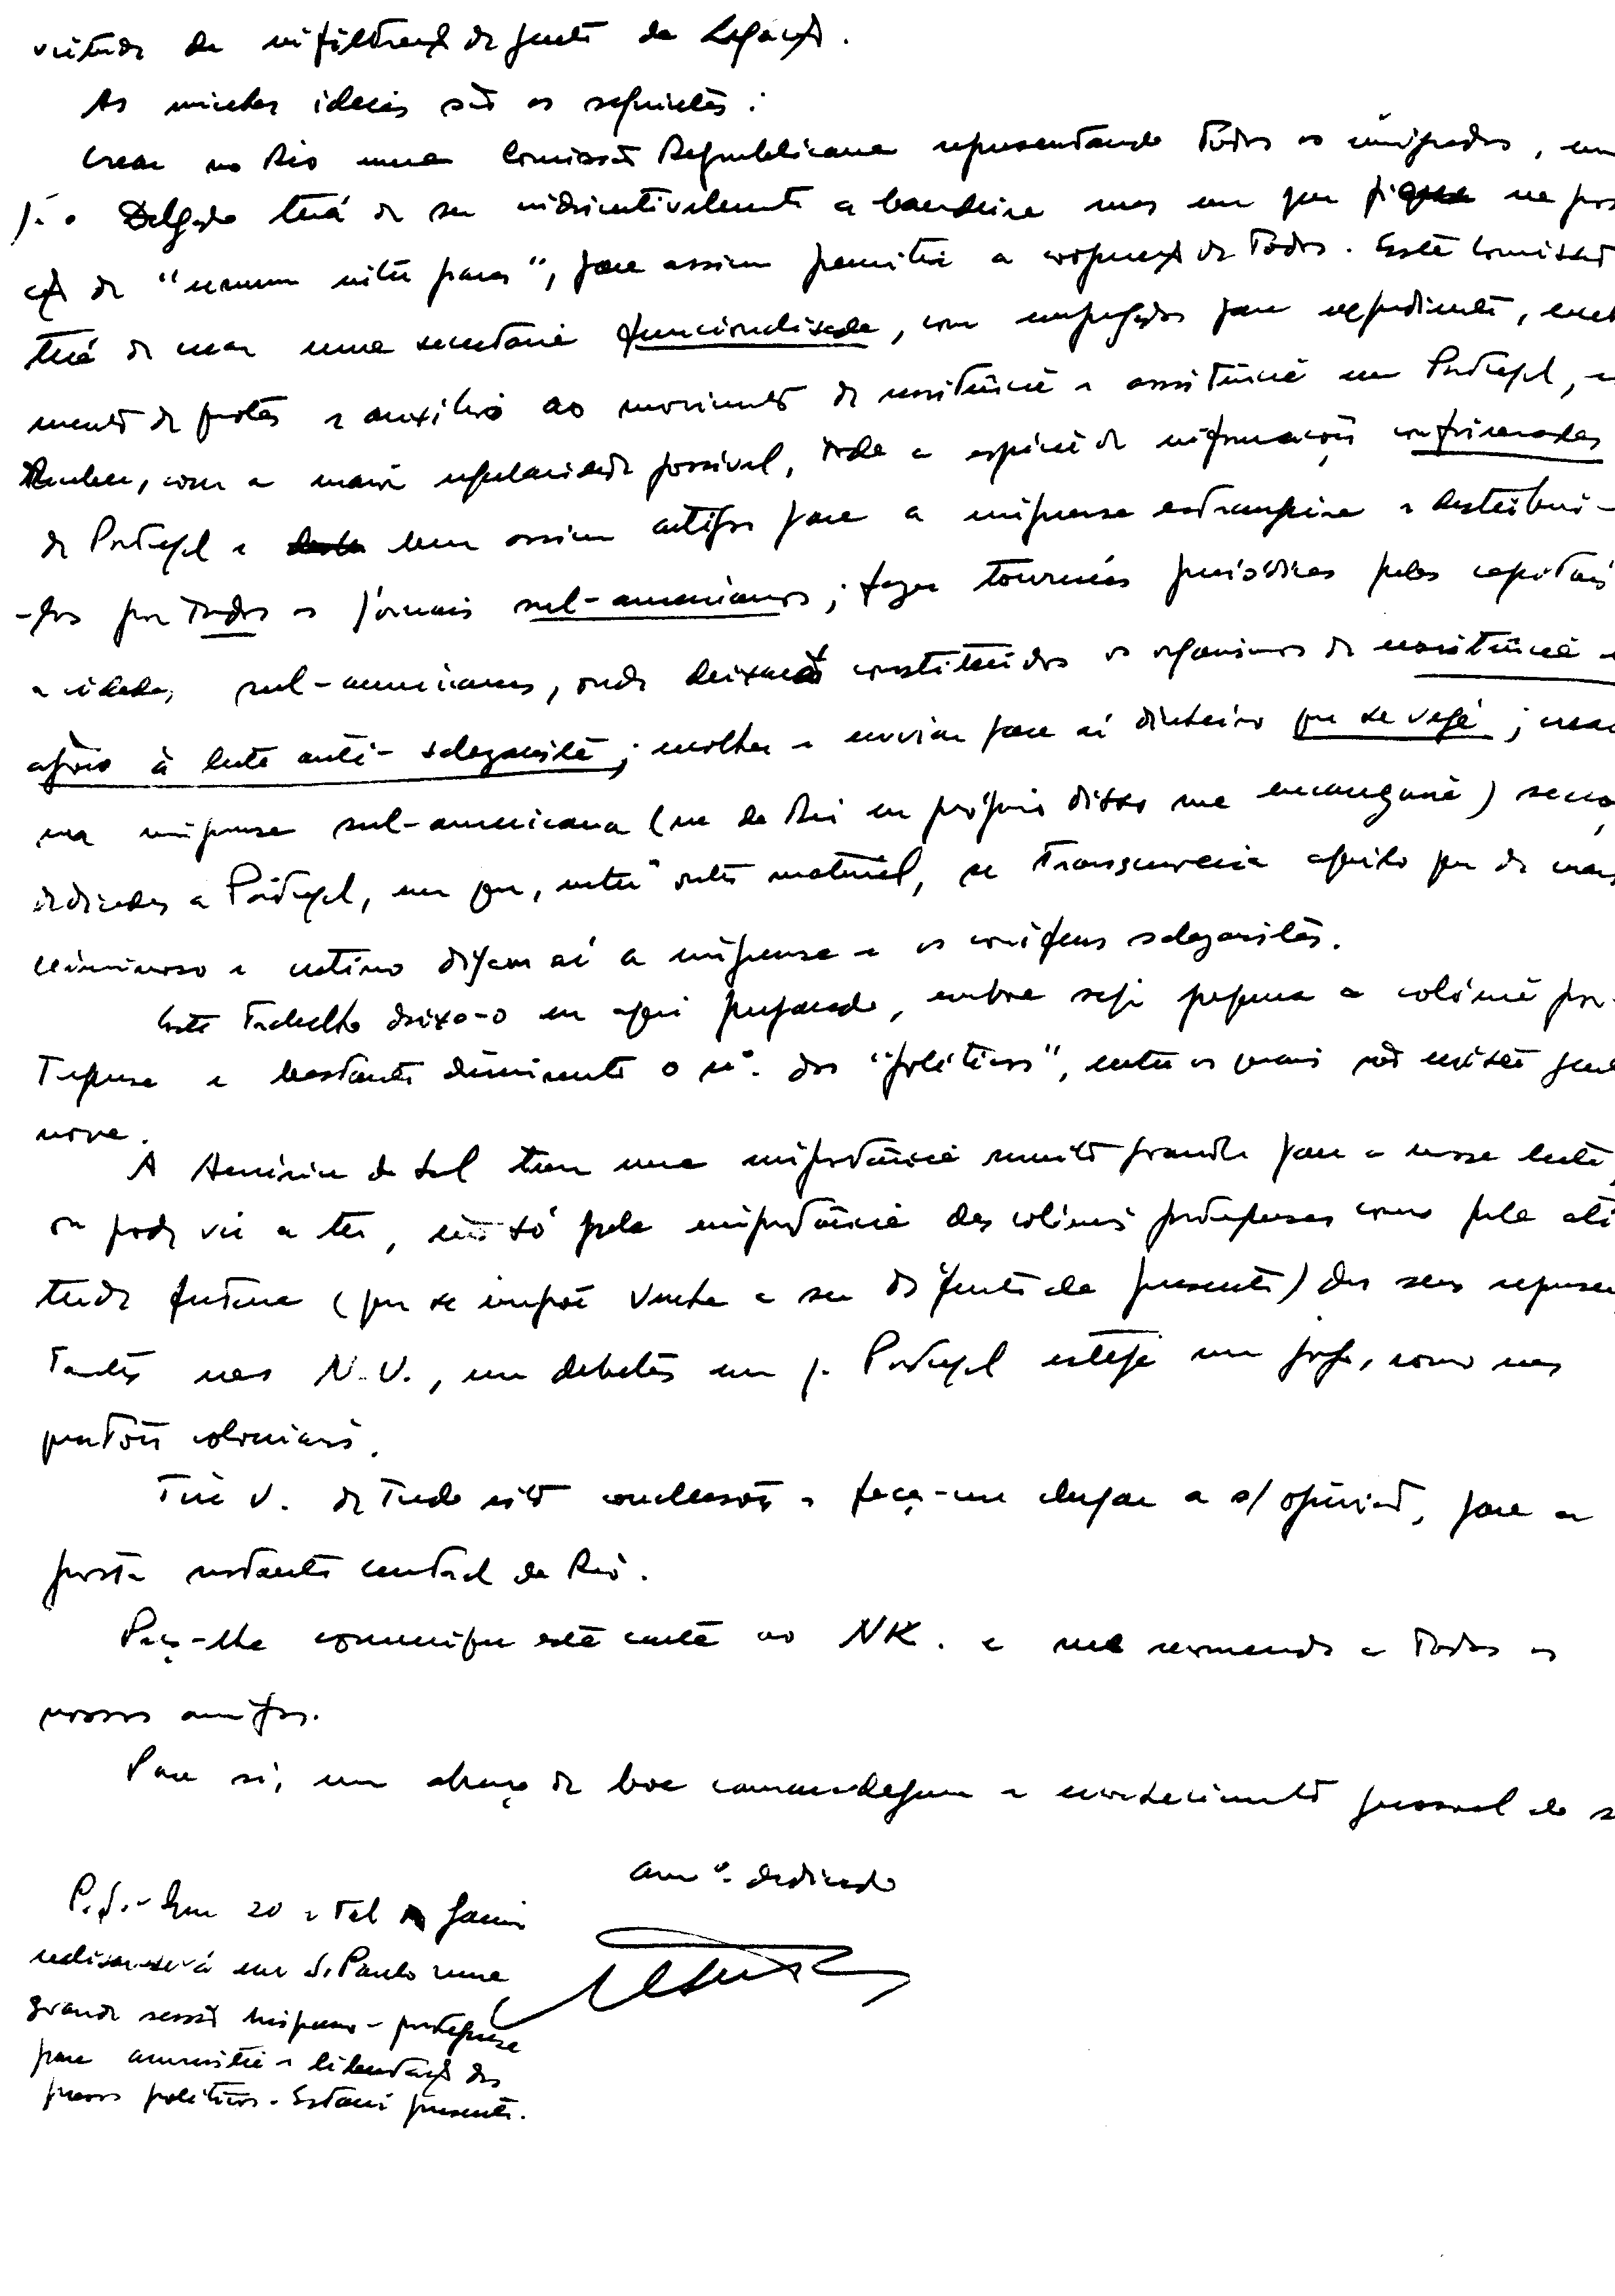 virtude da infiltração de gente da Legação.
As minhas ideias são as seguintes:
Crear no Rio uma Comissão Republicana representando todos os emigrados, em
já o Delgado terá de ser indiscutivelmente a bandeira mas em que fique na posi
ção de "unum inter pares", para assim permitir a cooperação de todos. Esta Comissão
terá de crear uma secretaria funcionalisada, com empregados para expediente,
mento de quotas e auxílio ao movimento de resistência e assistência em Portugal,
Receber, com a maior regularidade possível, toda a espécie de informações confirmadas
de Portugal e bem assim artigos para a imprensa estrangeira e distribui-
-los por todos os jornais sul-americanos; fazer tournées periódicas pelas capitais
e cidades sul-americanas, onde deixará constituidos os organismos de resistência e
apoio à luta anti-salazarista; recolher e enviar para aí dinheiro que se veja; crear
na imprensa sul-americana (na do Rio eu próprio disso me encarregaria) secço
dedicadas a Portugal, em que, entre outro material, se transcreveria aquilo que de mais
criminoso e cretino digam aí a imprensa e os corifeus salazaristas.
Este trabalho deixo-o eu aqui preparado, embora seja pequena a colónia por-
tuguesa e bastante diminuente o nº. dos "políticos", entre os quais não existe gente
nova.
A América do Sul tem uma importância muito grande para a nossa luta,
ou pode vir a ter, não só pela importância das colónias portuguesas como pela ati
tude futura (que se impõe venha a ser diferente da presente) dos seus represen
tantes nas N.U., em debates em q. Portugal esteja em jogo, como nas
questões coloniais.
Tire V. de tudo isto conclusões e faça-me chegar a s/ opinião, para a
posta restante central do Rio.
Peço-lhe comunique esta carta ao NK. e me recomende a todos os
nossos amigos.
Para si, um abraço de boa camaradagem e reconhecimento pessoal do s
amº. dedicado
P.S. - Em 20 e tal de Janeiro
realisar-se-á em S. Paulo uma
grande sessão hispano-portuguesa
para amnistia e libertação dos
presos políticos. Estarei presente.